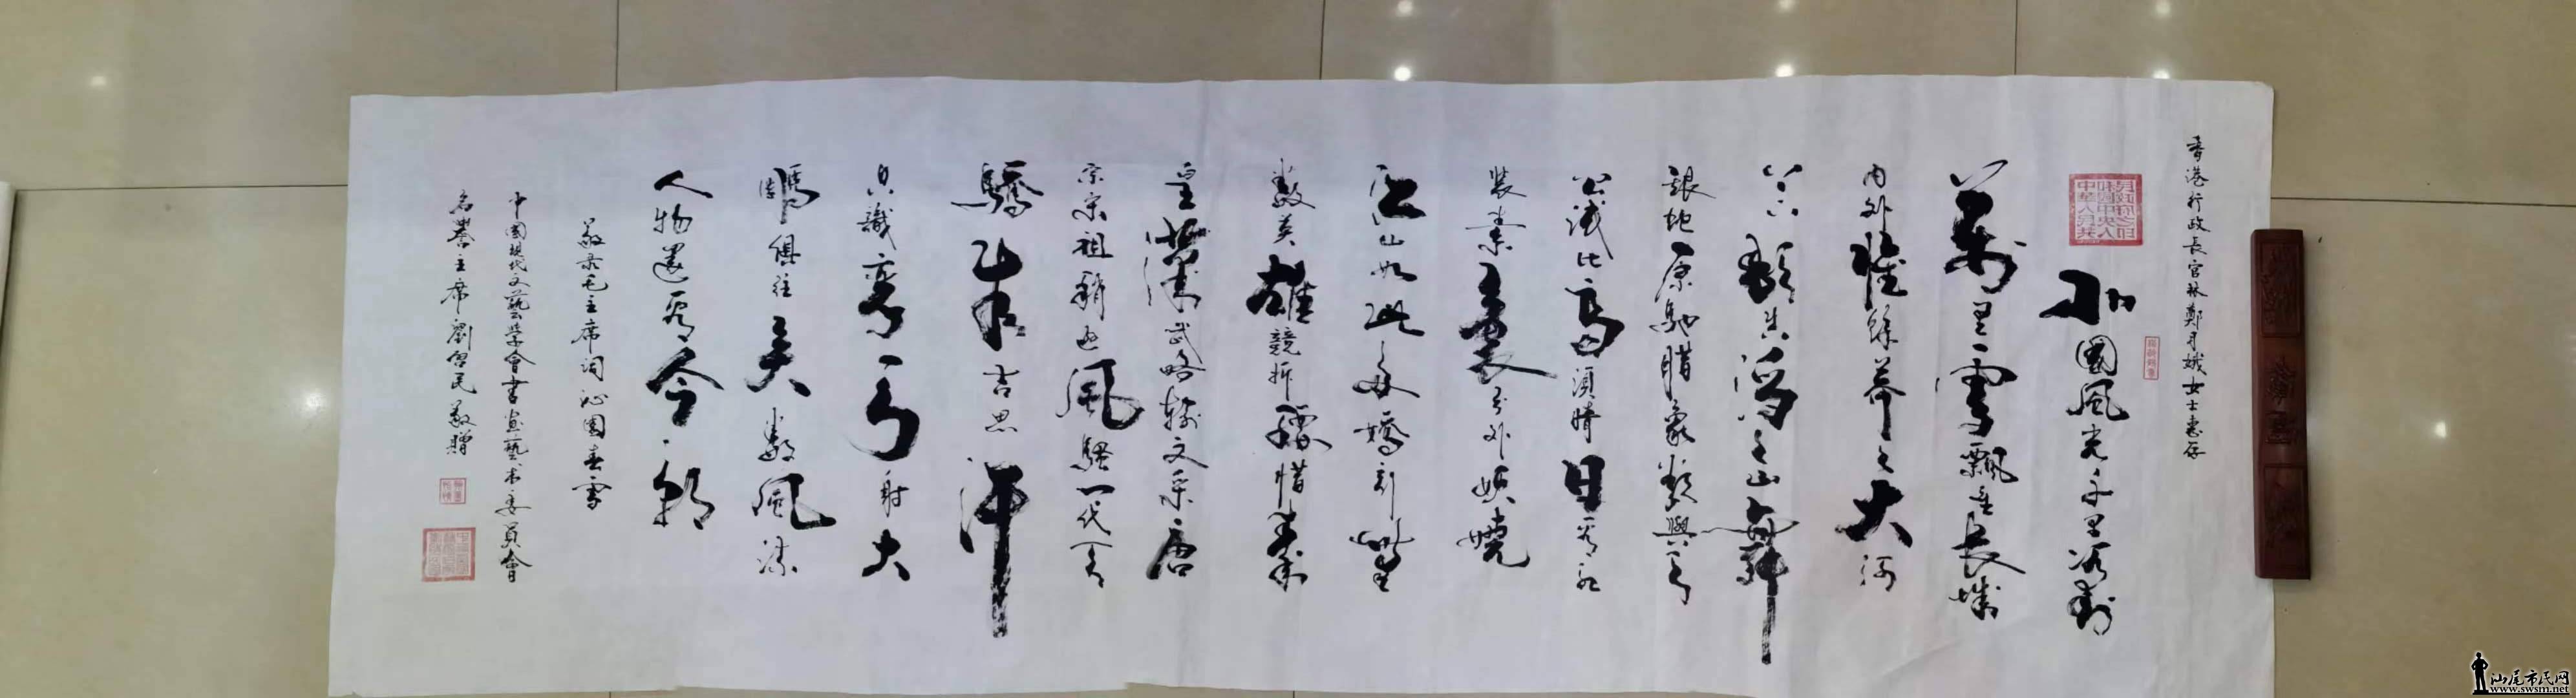 香港行政長官林鄭月娥女士惠存
北國風光千里冰封
萬里雪飄望長城
內外惟餘莽々大河
上下頓失滔々山舞
銀蛇原馳腊象欲與天
公試比高須晴日看紅
裝素裹分外妖嬈
江山如此多嬌引無
數英雄競折腰惜秦
皇漢武略輸文采唐
宗宋祖稍遜風騷一代天
驕成吉思汗
只識彎弓射大
鵰俱往矣數風流
人物還看今朝
敬录毛主席詞沁園春雪
中國現代文藝學會書畫藝术委員會
名譽主席劉民敬贈
汕尾市民网
www.swsm.net